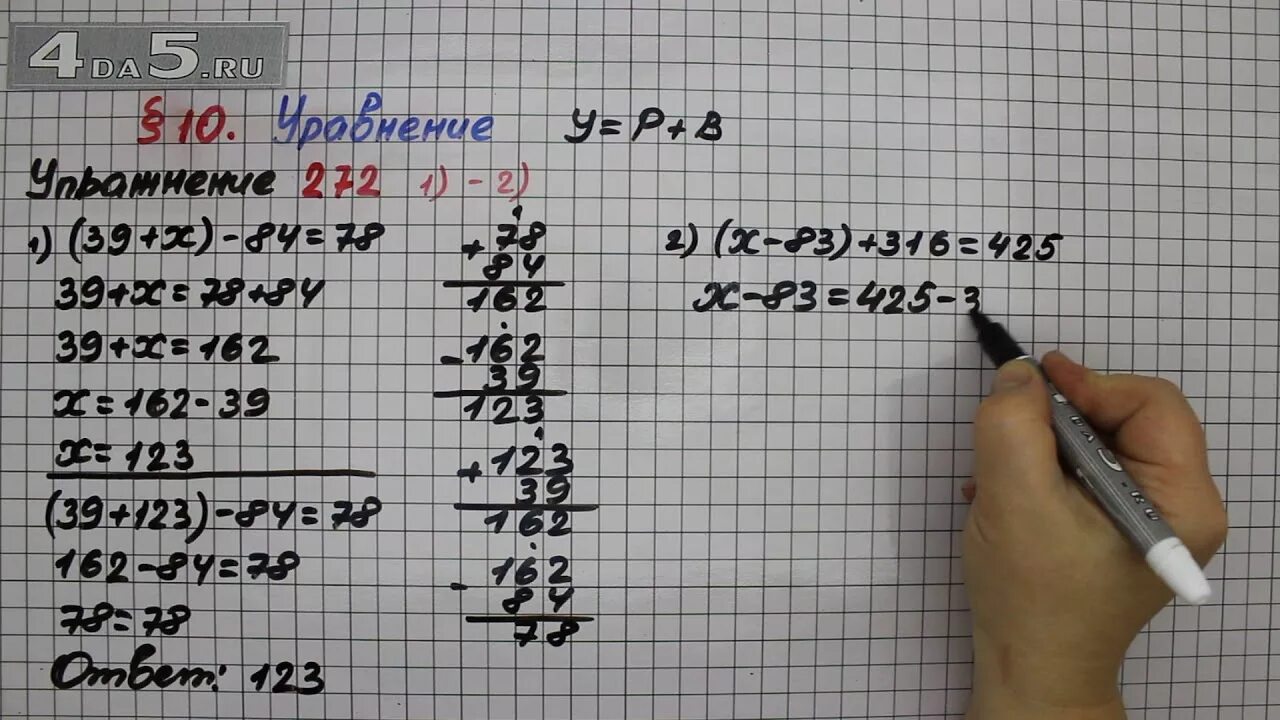 4DA5.RU
§ 10. Уравнение У = Р + В
Упражнение 272 1) - 2)
1) (39+x) - 84 = 78
39 + x = 78 + 84
39 + x = 162
x = 162 - 39
x = 123
(39+123) - 84 = 78
162 - 84 = 78
78 = 78
Ответ: 123
+ 78
84
162
- 162
39
123
+ 123
39
162
- 162
84
78
2) (x - 83) + 316 = 425
x - 83 = 425 - 3